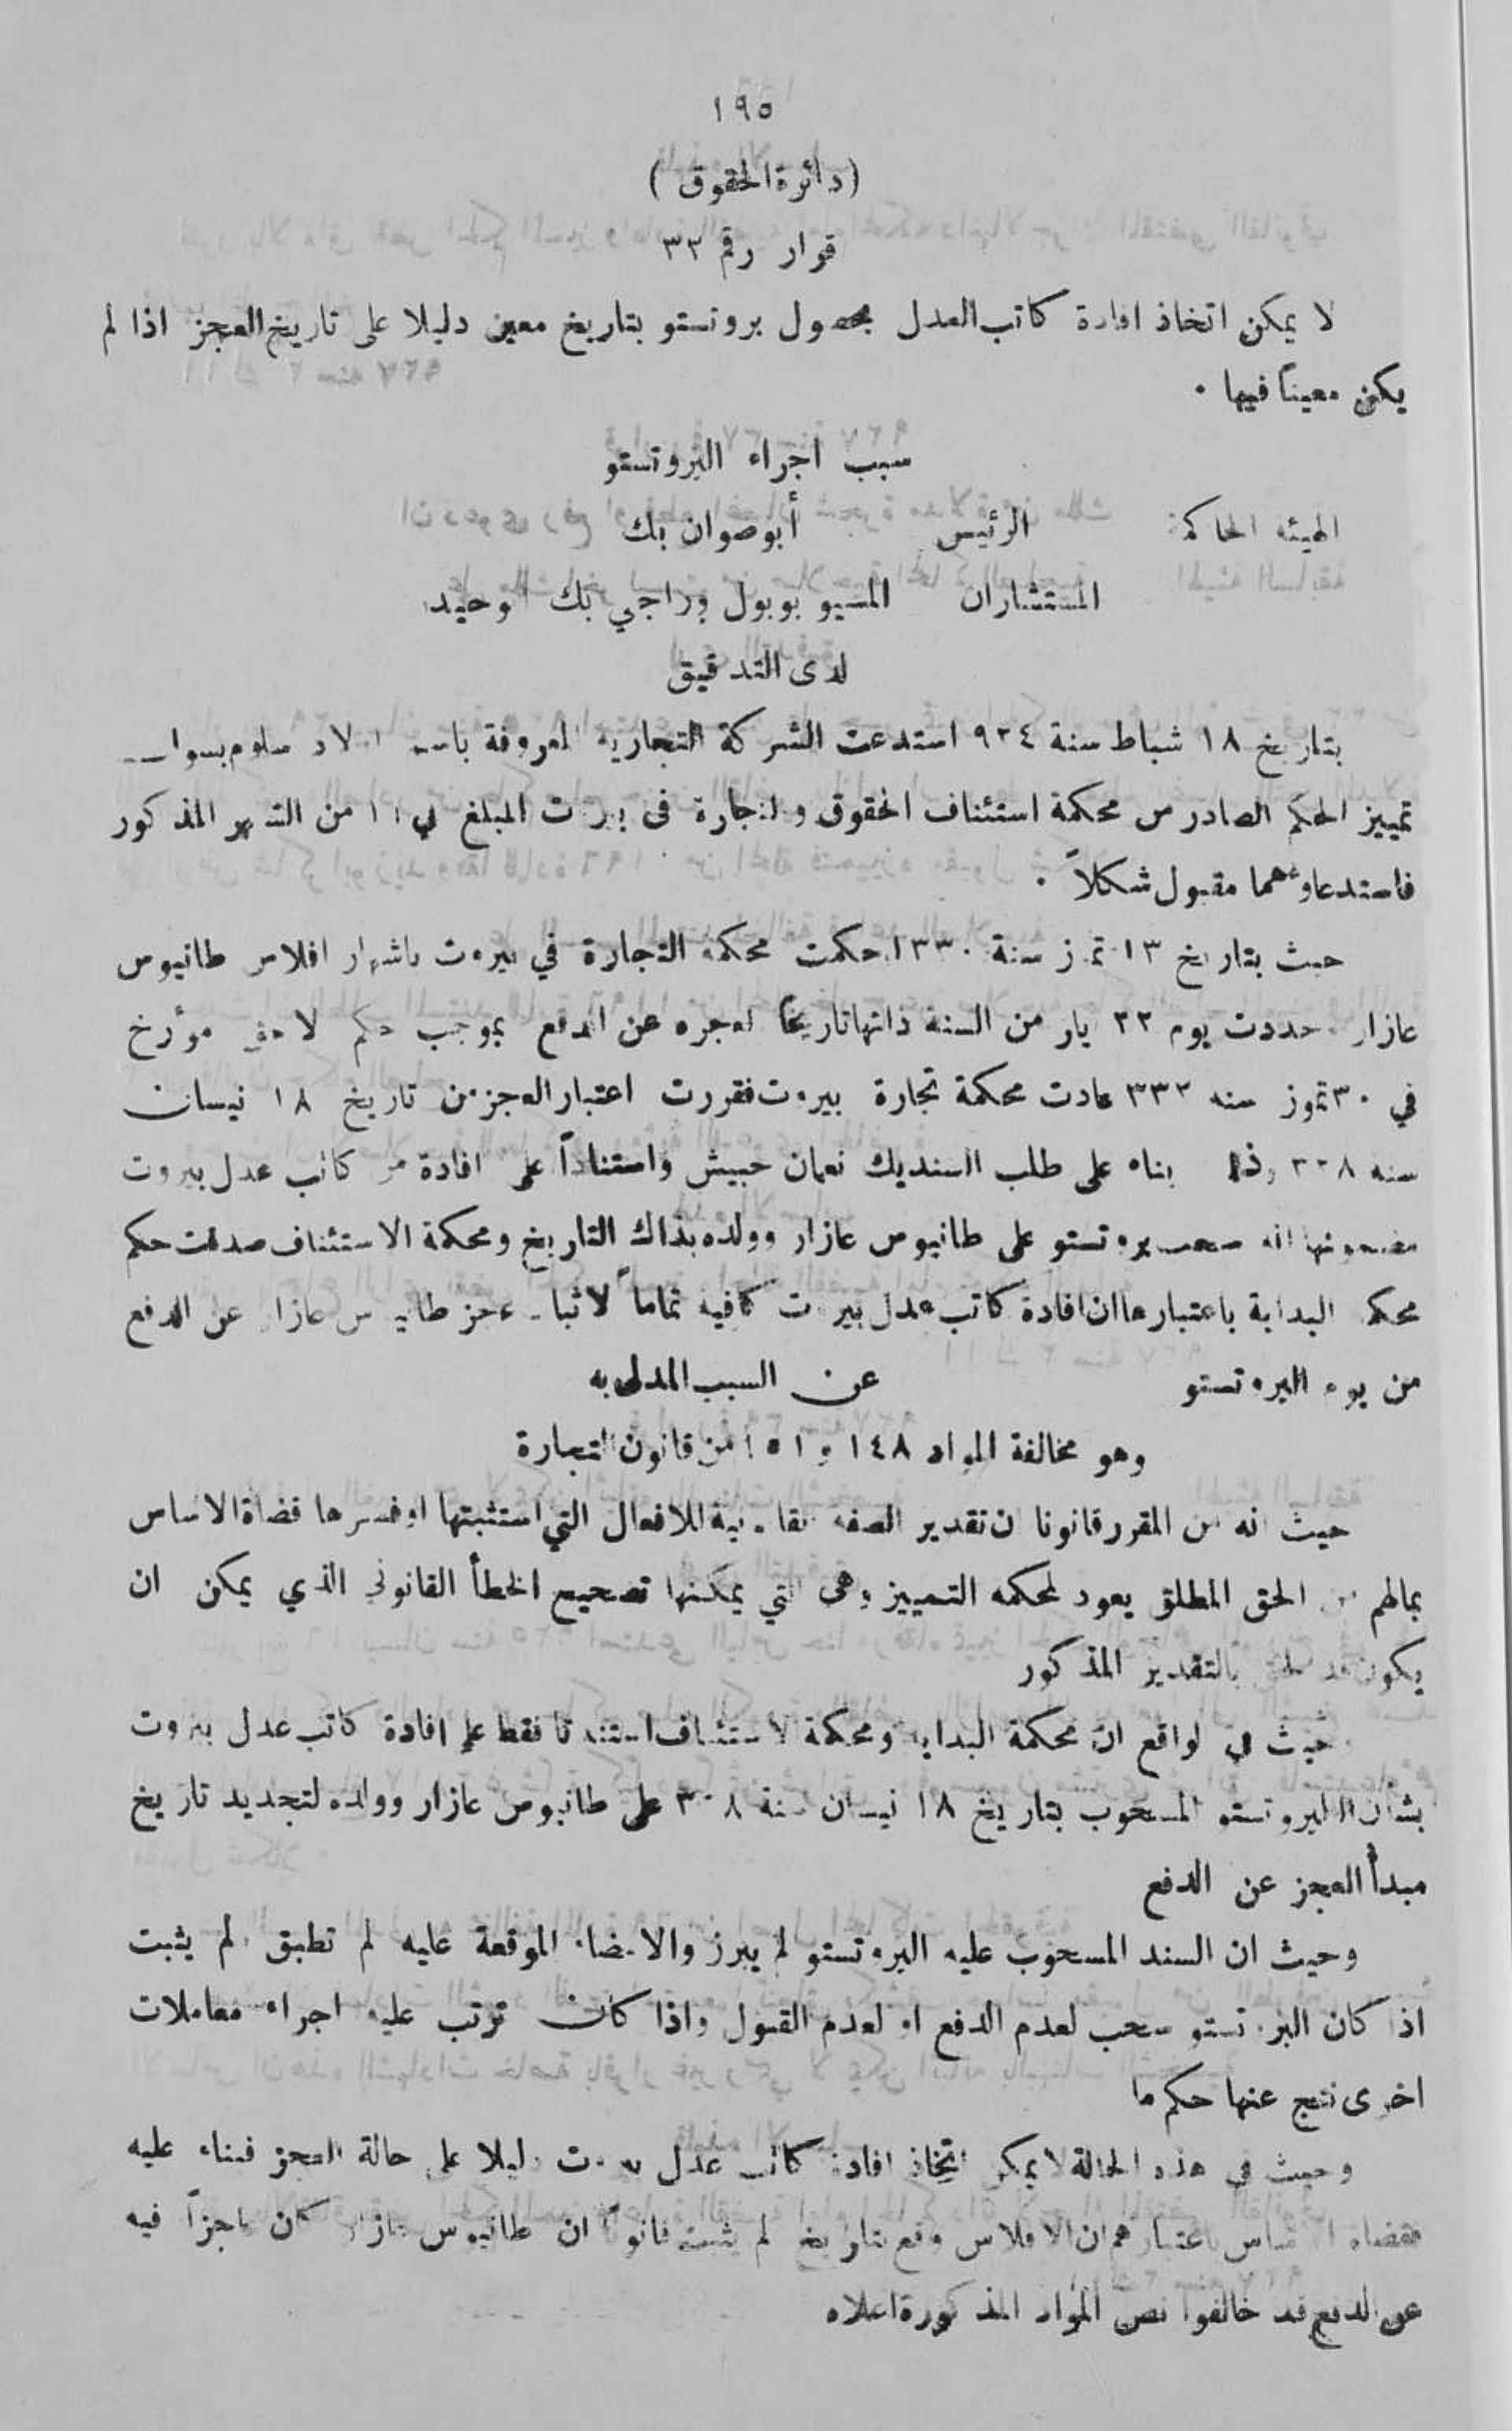 ١٩٥
(دائرة الحقوق)
قرار رقم ٣٢
لا يمكن اتخاذ افادة كاتب العدل بحصول بروتستو بتاريخ معين دليلا على تاريخ العجز اذا لم
يكن معيناً فيها ٠
سبب اجراء البروتستو
الهيئه الحاكمة الرئيس أبو صوان بك
المستشاران المسيو بوبول وراجي بك
لدى التدقيق
بتاريخ ١٨ شباط سنة ٩٢٤ استدعت الشركة التجارية المعروفة باسم اولاد
تمييز الحكم الصادر من محكمة استئناف الحقوق والتجارة في بيروت المبلغ في ١١ من الشهر المذكور
فاستدعاوءهما مقبول شكلاً ٠
حيث بتاريخ ١٣ تموز سنة ١٣٣٠ حكمت محكمة التجارة في بيروت باشهار افلاس طانيوس
عازار حددت يوم ٢٢ يار من السنة ذاتها تاريخاً لعجزه عن الدفع بموجب حكم لاحق موٴرخ
في ٣٠ تموز سنه ٣٣٢ عادت محكمة تجارة بيروت فقررت اعتبار العجز من تاريخ ١٨ نيسان
سنه بناء على طلب السنديك نعمان حبيش واستناداً على افادة من كاتب عدل بيروت
مضمونها انه سحب بروتستو على طانيوس عازار وولده بذاك التاريخ ومحكمة الاستئناف صدقت حكم
محكمة البداية باعتبارها ان افادة كاتب عدل بيروت كافيه تماماً لاثبات عجز طانيوس عازار عن الدفع
من يوم البروتستو عن السبب المدلى به
وهو مخالفة المواد ١٤٨ و ١٥١ من قانون التجارة
حيث انه من المقرر قانونا ان تقدير الصفه القانونية للافعال التي استثبتها او فسرها قضاة الاساس
بمالهم من الحق المطلق يعود لمحكمه التمييز وهي التي يمكنها تصحيح الخطأ القانوني الذي يمكن ان
يكون بالتقدير المذكور
حيث في الواقع ان محكمة البداية ومحكمة الاستئناف استندتا فقط على افادة كاتب عدل بيروت
بشأن البروتستو المسحوب بتاريخ ١٨ نيسان سنة على طانيوس عازار وولده لتحديد تاريخ
مبدأ العجز عن الدفع
وحيث ان السند المسحوب عليه البروتستو لم يبرز والامضاء الموقعة عليه لم تطبق لم يثبت
اذا كان البروتستو سحب لعدم الدفع او لعدم القبول واذا كان ترتب عليه اجراء معاملات
اخرى نتج عنها حكم ما
وحيث في هذه الحالة لا يمكن اتخاذ افادة كاتب عدل بيروت دليلا على حالة العجز فبناء عليه
فقضاة الاساس باعتبارهم ان الافلاس وقع بتاريخ لم يثبت قانوناً ان طانيوس عازار كان عاجزاً فيه
عن الدفع قد خالفوا نص المواد المذكورة اعلاه